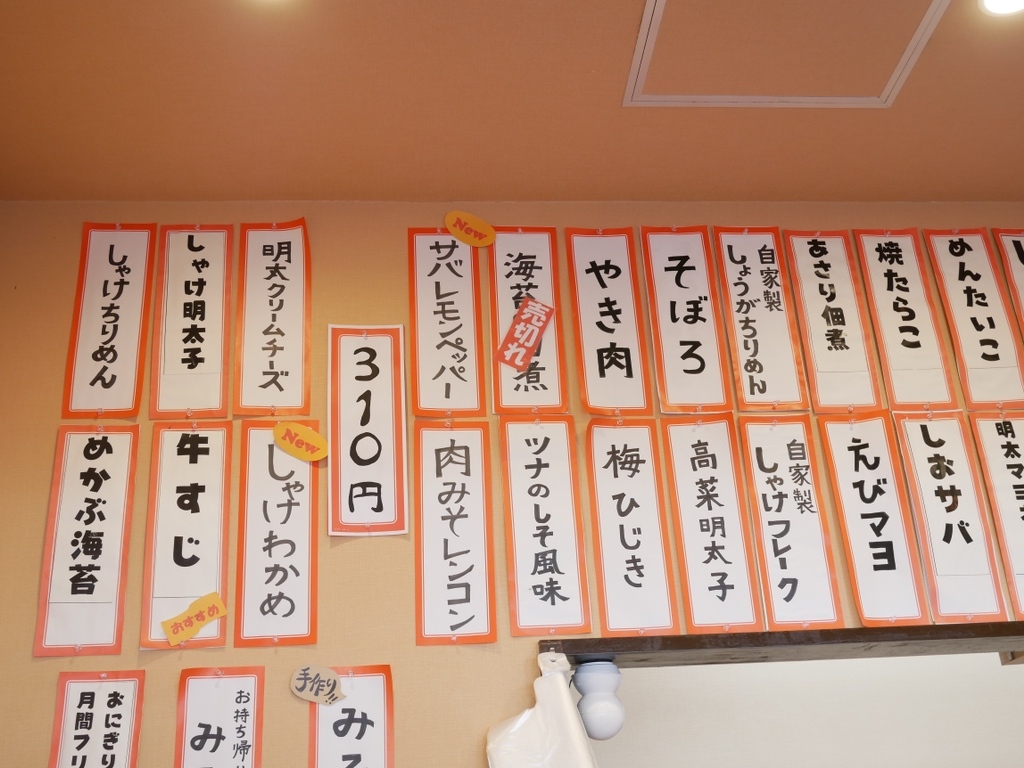 めんたいこ
焼たらこ
あさり佃煮
自家製
しょうがちりめん
そぼろ
やき肉
海苔
煮
売切れ
New
サバレモンペッパー
明太マヨ
しおサバ
えびマヨ
自家製
しゃけフレーク
高菜明太子
梅ひじき
ツナのしそ風味
肉みそレンコン
310円
明太クリームチーズ
しゃけ明太子
しゃけちりめん
New
しゃけわかめ
牛すじ
おすすめ
めかぶ海苔
手作り!!
み
お持ち帰り
み
おにぎり
月間フリ